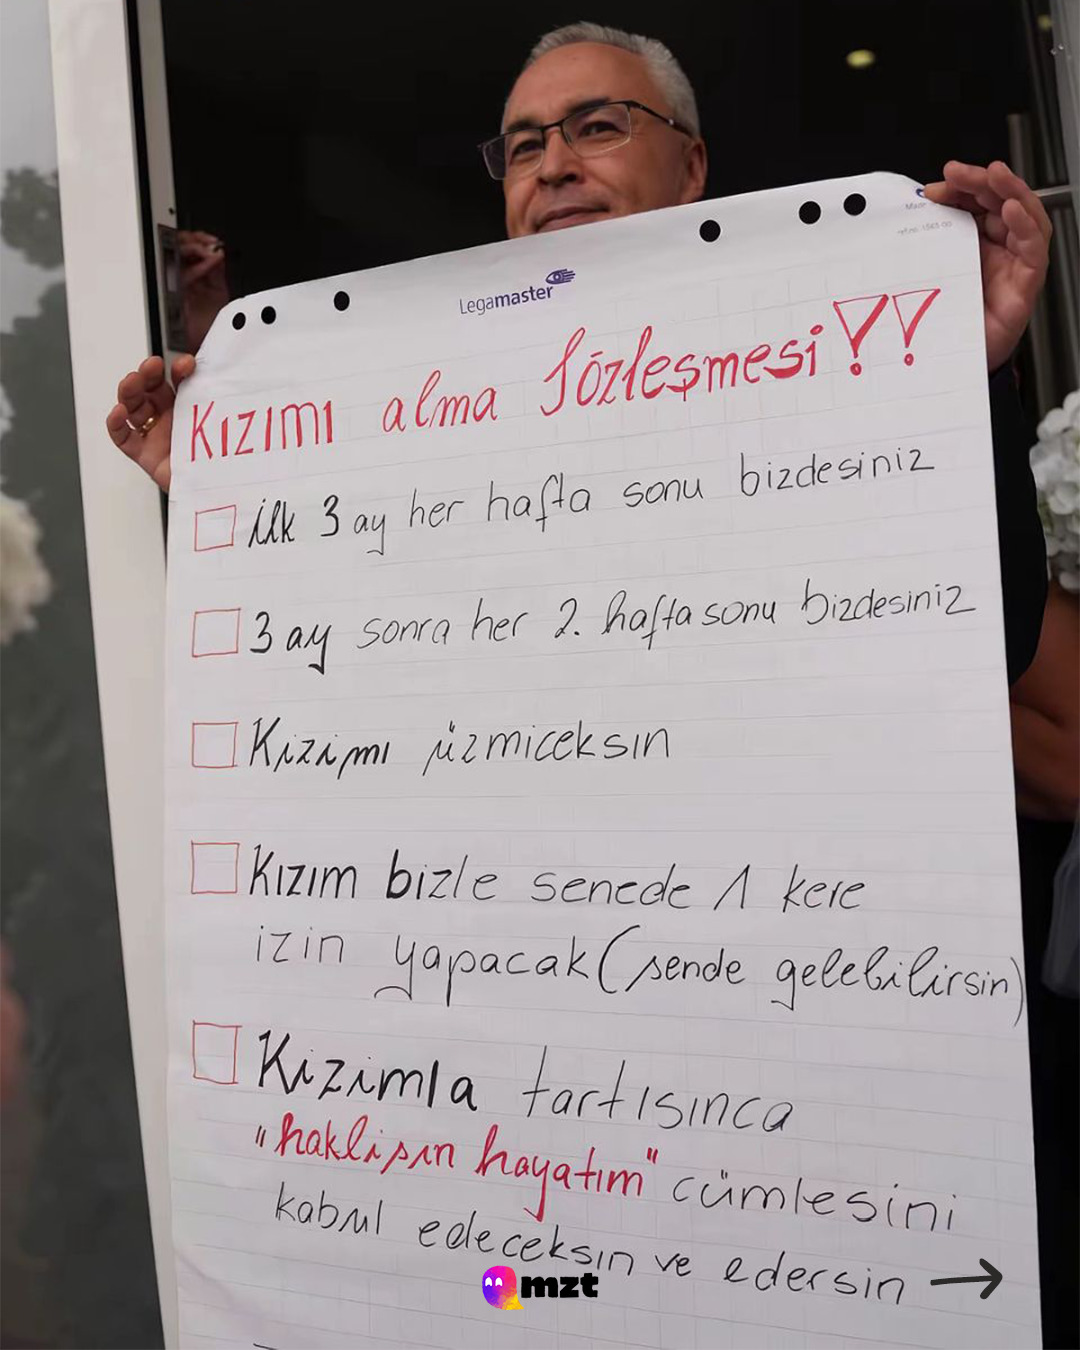 Legamaster
Kızımı alma Sözleşmesi!!
ilk 3 ay her hafta sonu bizdesiniz
3 ay sonra her 2. hafta sonu bizdesiniz
Kizimı üzmiceksın
Kızım bizle senede 1 kere
izin yapacak (sende gelebilirsin)
Kizimla tartısınca
"haklisın hayatım" cümlesini
kabul edeceksın ve edersin
mzt